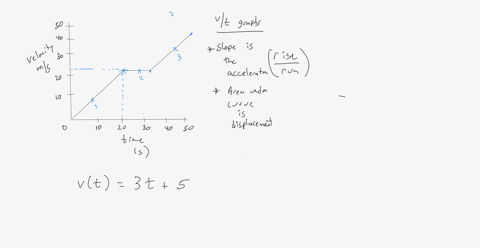 2
v/t graphs
50
40
30
20
10
0
velocity
m/s
1
2
3
10 20 30 40 50
time
(s)
* Slope is
the
(rise/run)
* Area
curve
is
displacement
v(t) = 3t + 5